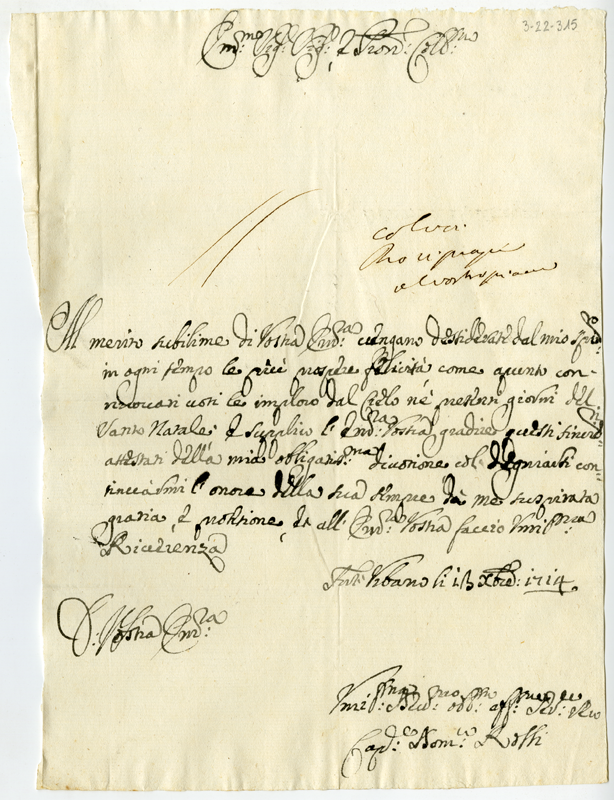 3-22-315
Em.mo Sig.r Sig.r e Pron: Coll.mo
Al merito sublime di Vostra Em.za vengano desiderate dal mio
in ogni tempo le più prospere felicità come apunto con
voti le imploro dal Cielo né presenti giorni del
Santo Natale; E supplico l'Em.za Vostra gradire questi sinceri
attestati della mia obligatis.ma divotione col degniarsi con-
tinuarmi l'onore della sua sempre da me suspirata
grazia, e protetione, et all'Em.za Vostra faccio Umil.ma
Riverenza
Forte Urbano li 13 Xbre: 1714.
D: Vostra Em.za
Umil.mo Dev.mo obb.mo aff.mo Ser.re Vero
Cap.o Dom.co Rossi